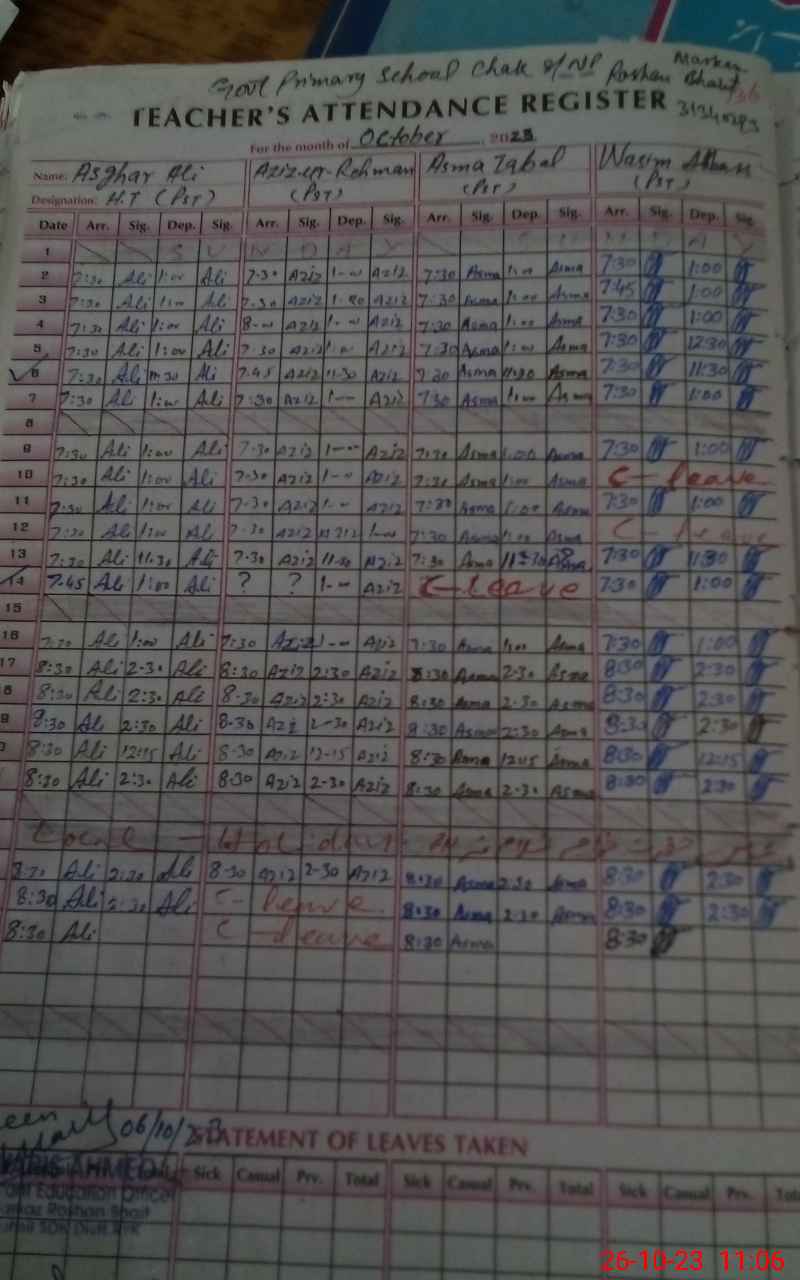 Govt Primary School Chak
Markaz
Roshan Bhait
TEACHER'S ATTENDANCE REGISTER
For the month of October, 2023
Name: Asghar Ali Aziz-ur-Rehman Asma Iqbal Wasim
Designation: H.T (PST) (PST) (PST) (PST)
Date Arr. Sig. Dep. Sig. Arr. Sig. Dep. Sig. Arr. Sig. Dep. Sig. Arr. Sig. Dep. Sig.
1 S U N D A Y
2 7:30 Ali 1:00 Ali 7-30 Aziz 1-00 Aziz 7:30 Asma 1:00 Asma 7:30 1:00
3 7:30 Ali 1:00 Ali 7-30 Aziz 1-00 Aziz 7:30 Asma 1:00 Asma 7:45 1:00
4 7:30 Ali 1:00 Ali 8-00 Aziz 1-00 Aziz 7:30 Asma 1:00 Asma 7:30 1:00
5 7:30 Ali 1:00 Ali 7-30 Aziz 1-00 Aziz 7:30 Asma 1:00 Asma 7:30 12:30
6 7:30 Ali 11:30 Ali 7-45 Aziz 11-30 Aziz 7:30 Asma 11:30 Asma 7:30 11:30
7 7:30 Ali 1:00 Ali 7:30 Aziz 1-00 Aziz 7:30 Asma 1:00 Asma 7:30 1:00
8
9 7:30 Ali 1:00 Ali 7-30 Aziz 1-00 Aziz 7:30 Asma 1:00 Asma 7:30 1:00
10 7:30 Ali 1:00 Ali 7-30 Aziz 1-00 Aziz 7:30 Asma 1:00 Asma C-leave
11 7:30 Ali 1:00 Ali 7-30 Aziz 1-00 Aziz 7:30 Asma 1:00 Asma 7:30 1:00
12 7:30 Ali 1:00 Ali 7-30 Aziz 1-00 7:30 Asma 1:00 Asma C-leave
13 7:30 Ali 11:30 Ali 7-30 Aziz 11-30 Aziz 7:30 Asma 11:30 Asma 7:30 11:30
14 7.45 Ali 1:00 Ali ? ? 1-00 Aziz C-leave 7:30 1:00
15
16 7:30 Ali 1:00 Ali 7:30 Aziz 1-00 Aziz 7:30 Asma 1:00 Asma 7:30 1:00
17 8:30 Ali 2-30 Ali 8:30 Aziz 2:30 Aziz 8:30 Asma 2-30 Asma 8:30 2:30
8 8:30 Ali 2:30 Ali 8-30 Aziz 2:30 Aziz 8:30 Asma 2-30 Asma 8:30 2:30
9 8:30 Ali 2:30 Ali 8-30 Aziz 2-30 Aziz 8:30 Asma 2:30 Asma 8:30 2:30
8:30 Ali 12:15 Ali 8-30 Aziz 12-15 Aziz 8:30 Asma 12:15 Asma 8:30 12:15
8:30 Ali 2:30 Ali 8-30 Aziz 2-30 Aziz 8:30 Asma 2-30 Asma 8:30 2:30
Local - Holiday
8:30 Ali 2:30 Ali 8-30 Aziz 2-30 Aziz 8:30 Asma 2:30 Asma 8:30 2:30
8:30 Ali 2:30 Ali C-leave 8:30 Asma 2:30 Asma 8:30 2:30
8:30 Ali C-leave 8:30 Asma 8:30
06/10/23
STATEMENT OF LEAVES TAKEN
AHMED
Education Officer
Roshan Bhait
Sick Casual Prv. Total Sick Casual Prv. Total Sick Casual Prv.
26-10-23 11:06